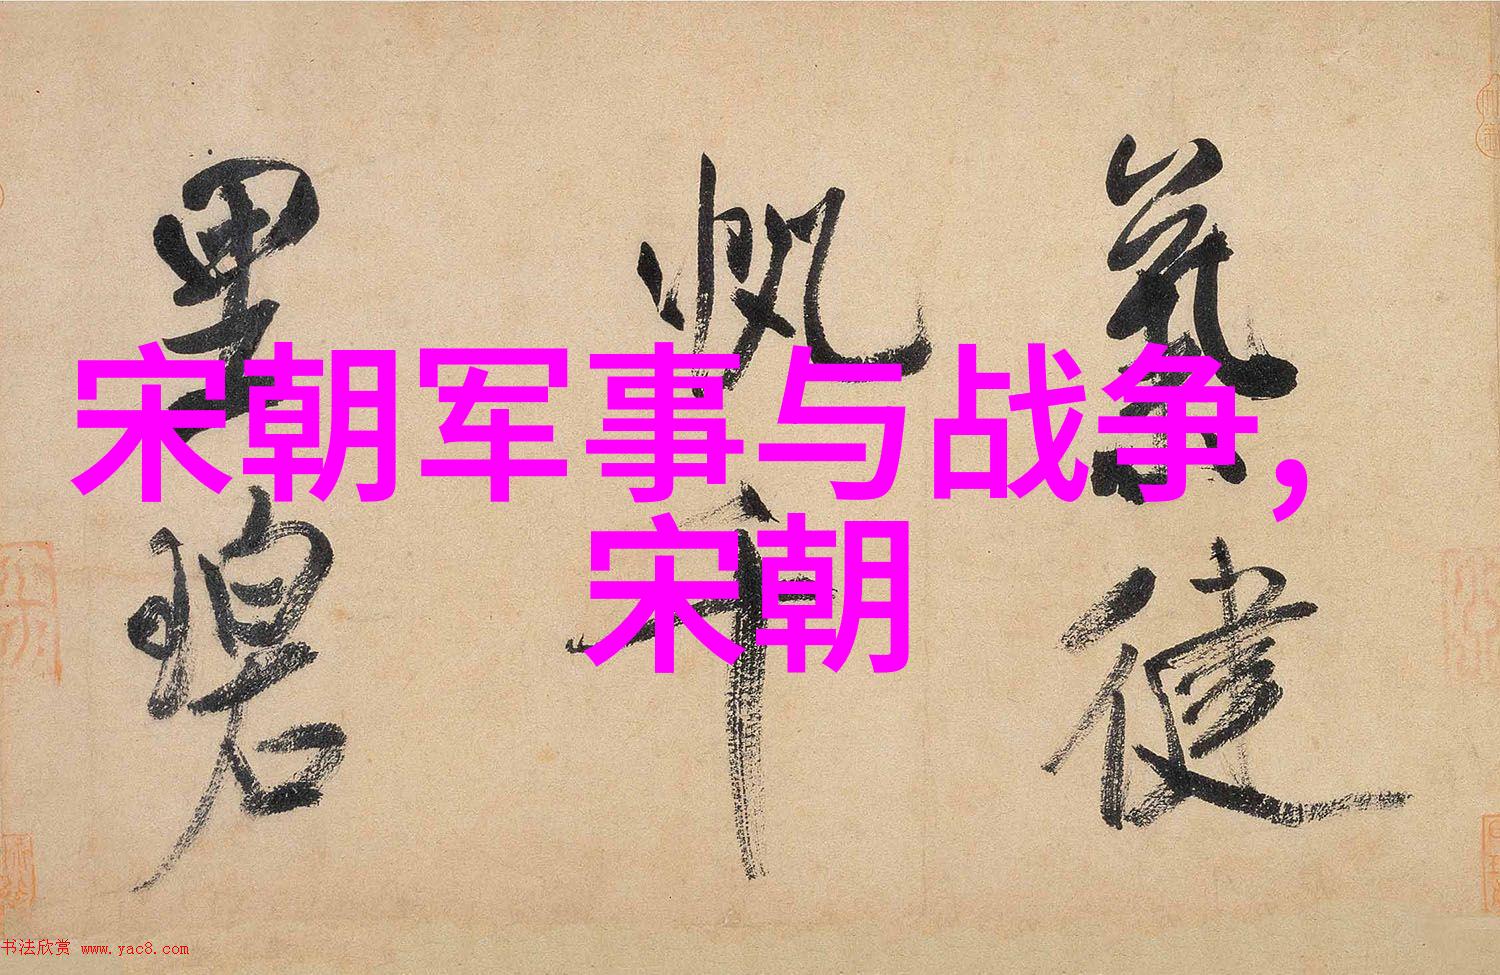 宋朝军事与战争,
宋朝
氣健
帆千
里碧
书法欣赏 www.yac8.com